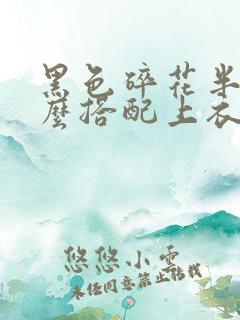 黑色碎花半
麽搭配上衣
悠悠小雲
未经同意禁止转载